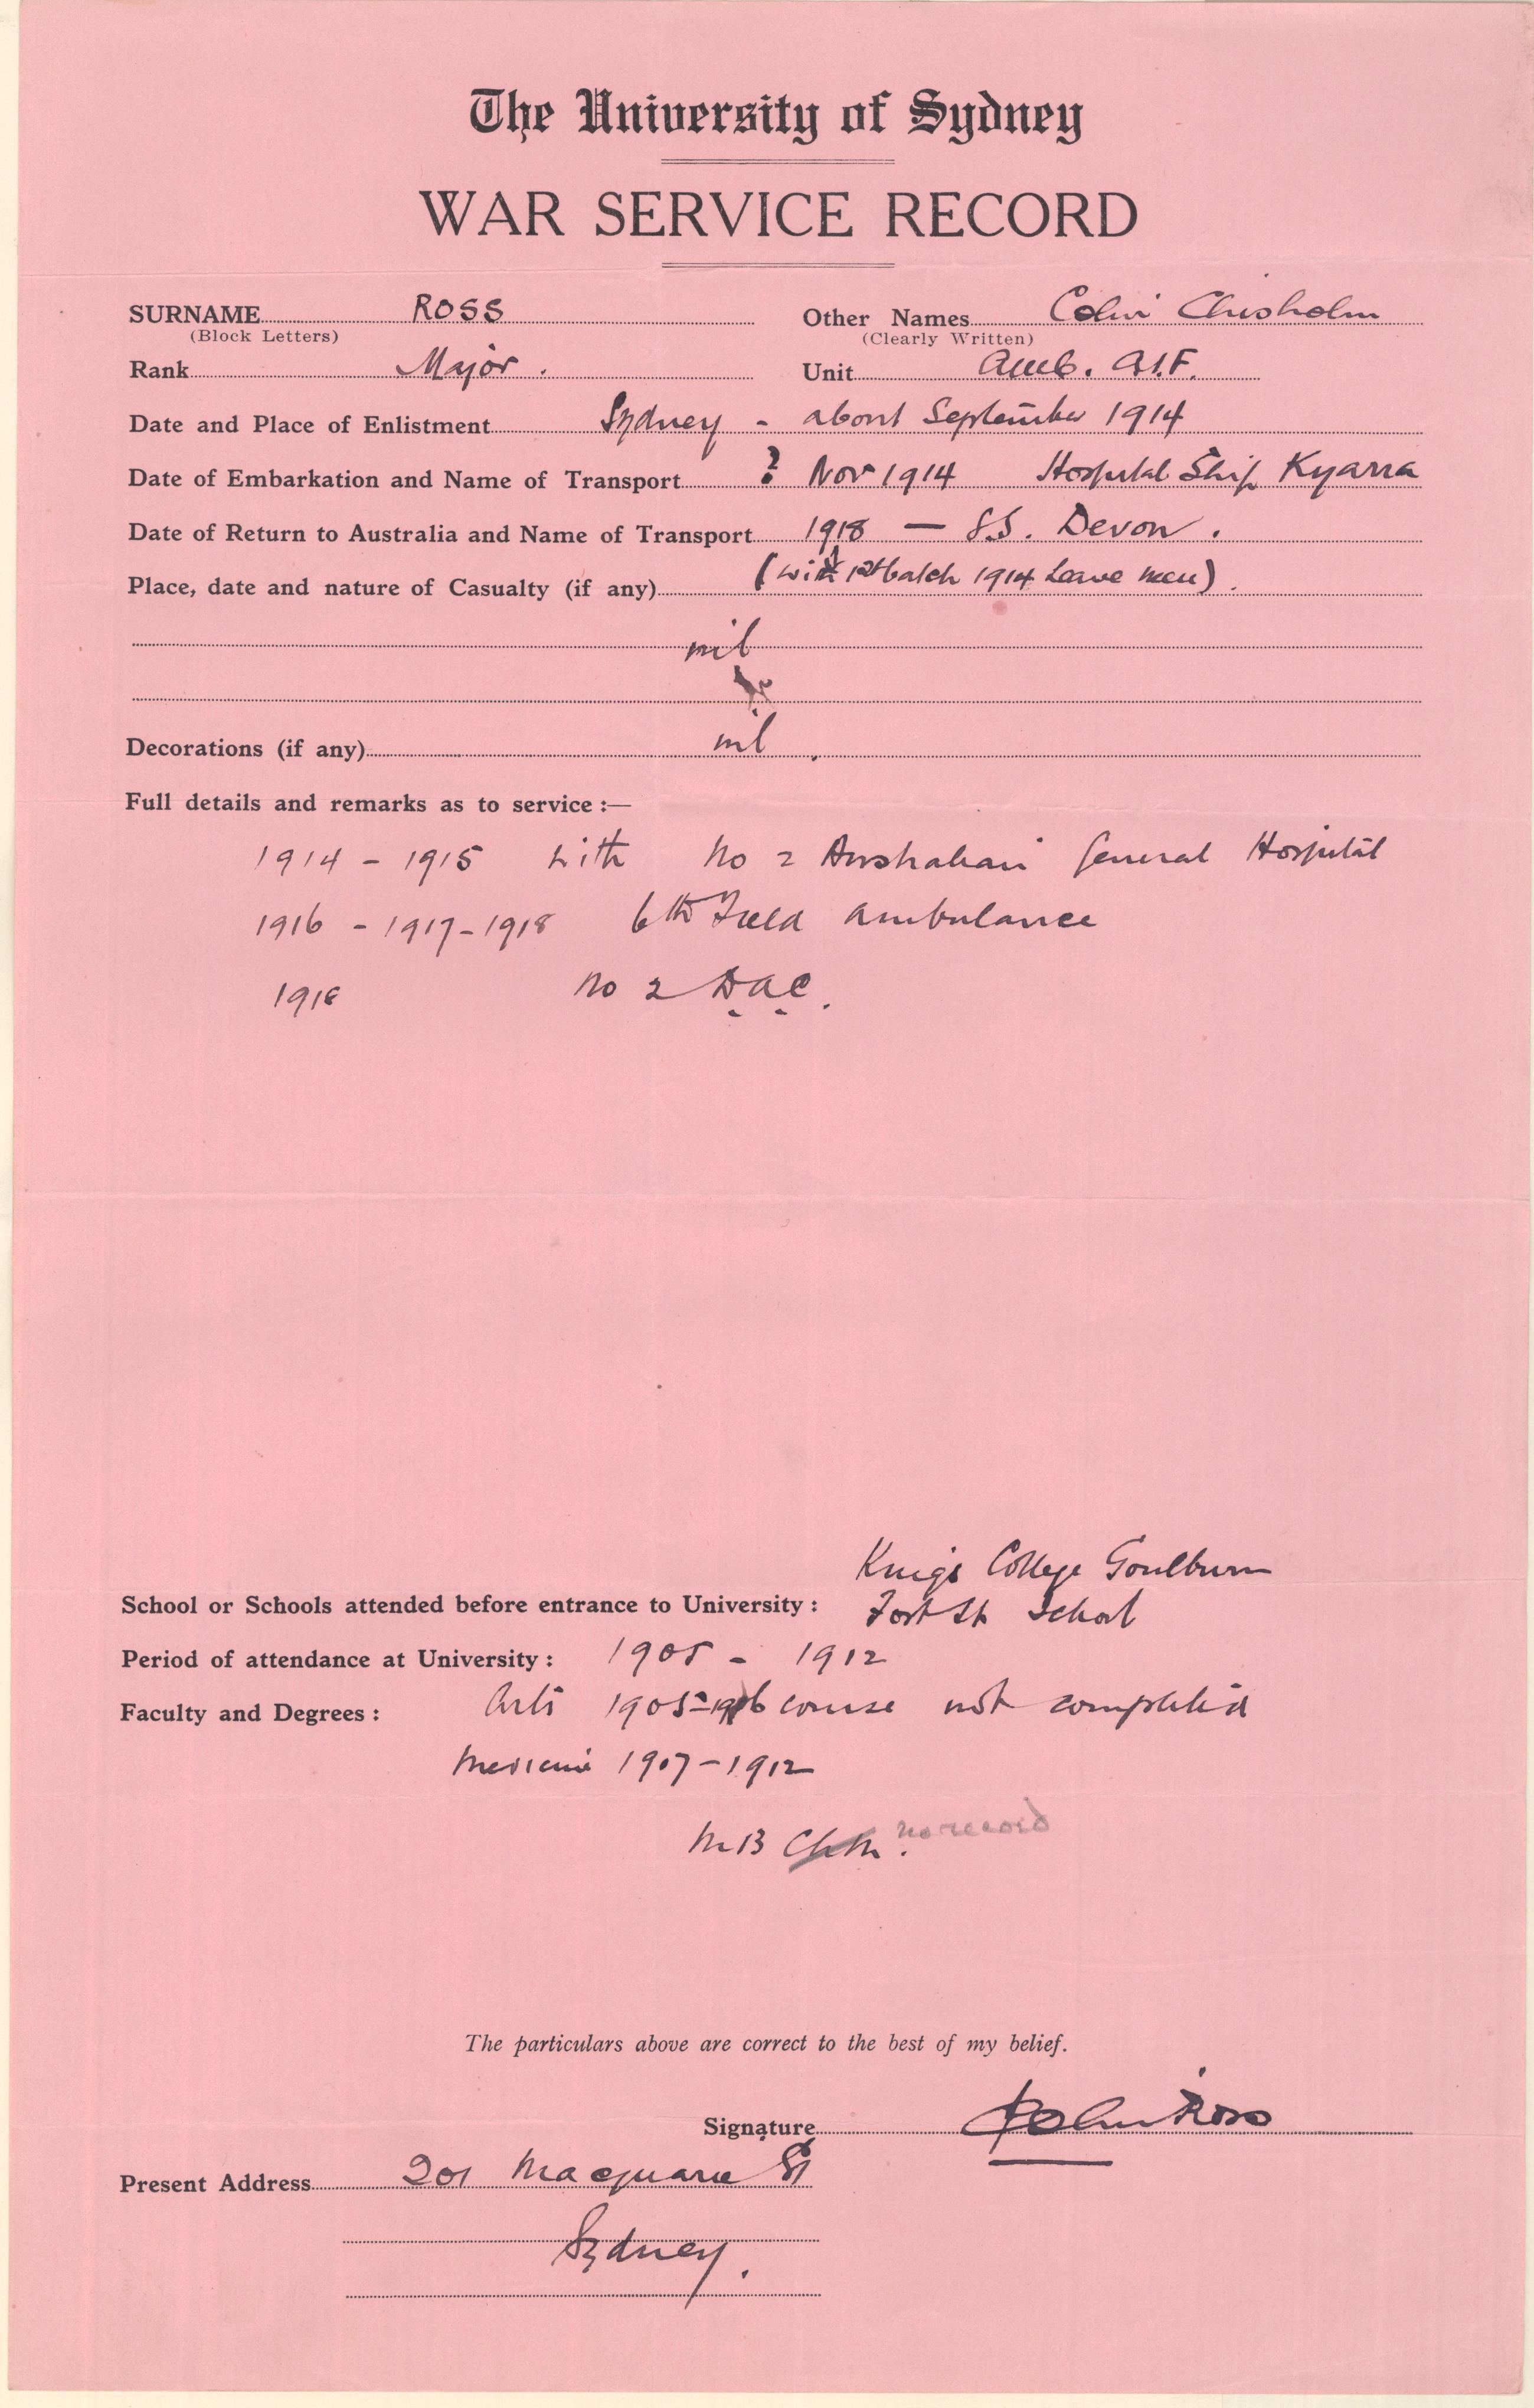 The University of Sydney
WAR SERVICE RECORD
SURNAME ROSS Other Names Colin Chisholm
(Block Letters) (Clearly Written)
Rank Major. Unit Amb. A.I.F.
Date and Place of Enlistment Sydney - about September 1914
Date of Embarkation and Name of Transport ? Nov 1914 Hospital Ship Kyarra
Date of Return to Australia and Name of Transport 1918 — S.S. Devon.
Place, date and nature of Casualty (if any) (with 1st batch 1914 Leave men).
nil
Decorations (if any) nil.
Full details and remarks as to service :—
1914 - 1915 with No 2 Australian General Hospital
1916 - 1917 - 1918 6th Field Ambulance
1918 No 2 D.A.C.
Kings College Goulburn
School or Schools attended before entrance to University : Fort St School
Period of attendance at University : 1905 - 1912
Faculty and Degrees : Arts 1905-1906 course not completed
Medicine 1907-1912
M B Ch M. no record
The particulars above are correct to the best of my belief.
Signature Colin Ross
Present Address 201 Macquarie St
Sydney.